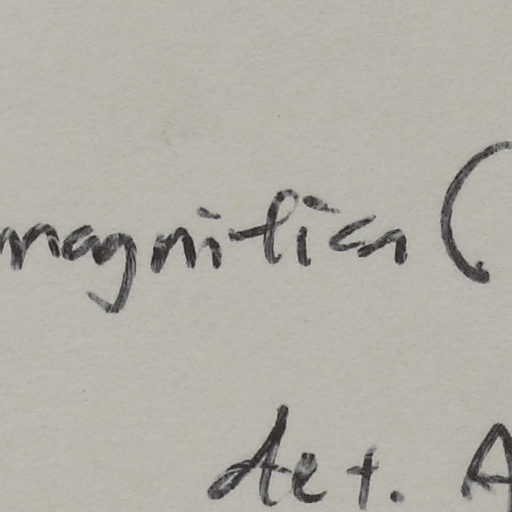 magnifica (
det. A